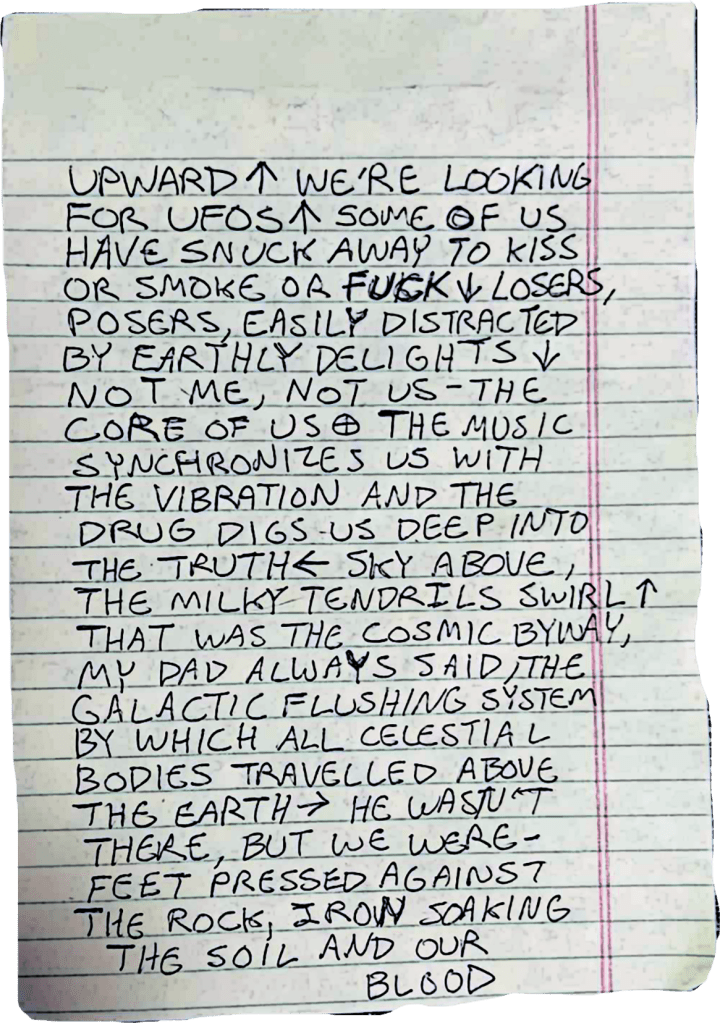 UPWARD ↑ WE'RE LOOKING
FOR UFOS ↑ SOME OF US
HAVE SNUCK AWAY TO KISS
OR SMOKE OR FUCK ↓ LOSERS,
POSERS, EASILY DISTRACTED
BY EARTHLY DELIGHTS ↓
NOT ME, NOT US - THE
CORE OF US ⊕ THE MUSIC
SYNCHRONIZES US WITH
THE VIBRATION AND THE
DRUG DIGS US DEEP INTO
THE TRUTH ← SKY ABOVE,
THE MILKY TENDRILS SWIRL ↑
THAT WAS THE COSMIC BYWAY,
MY DAD ALWAYS SAID, THE
GALACTIC FLUSHING SYSTEM
BY WHICH ALL CELESTIAL
BODIES TRAVELLED ABOVE
THE EARTH → HE WASN'T
THERE, BUT WE WERE -
FEET PRESSED AGAINST
THE ROCK, IRON SOAKING
THE SOIL AND OUR
BLOOD